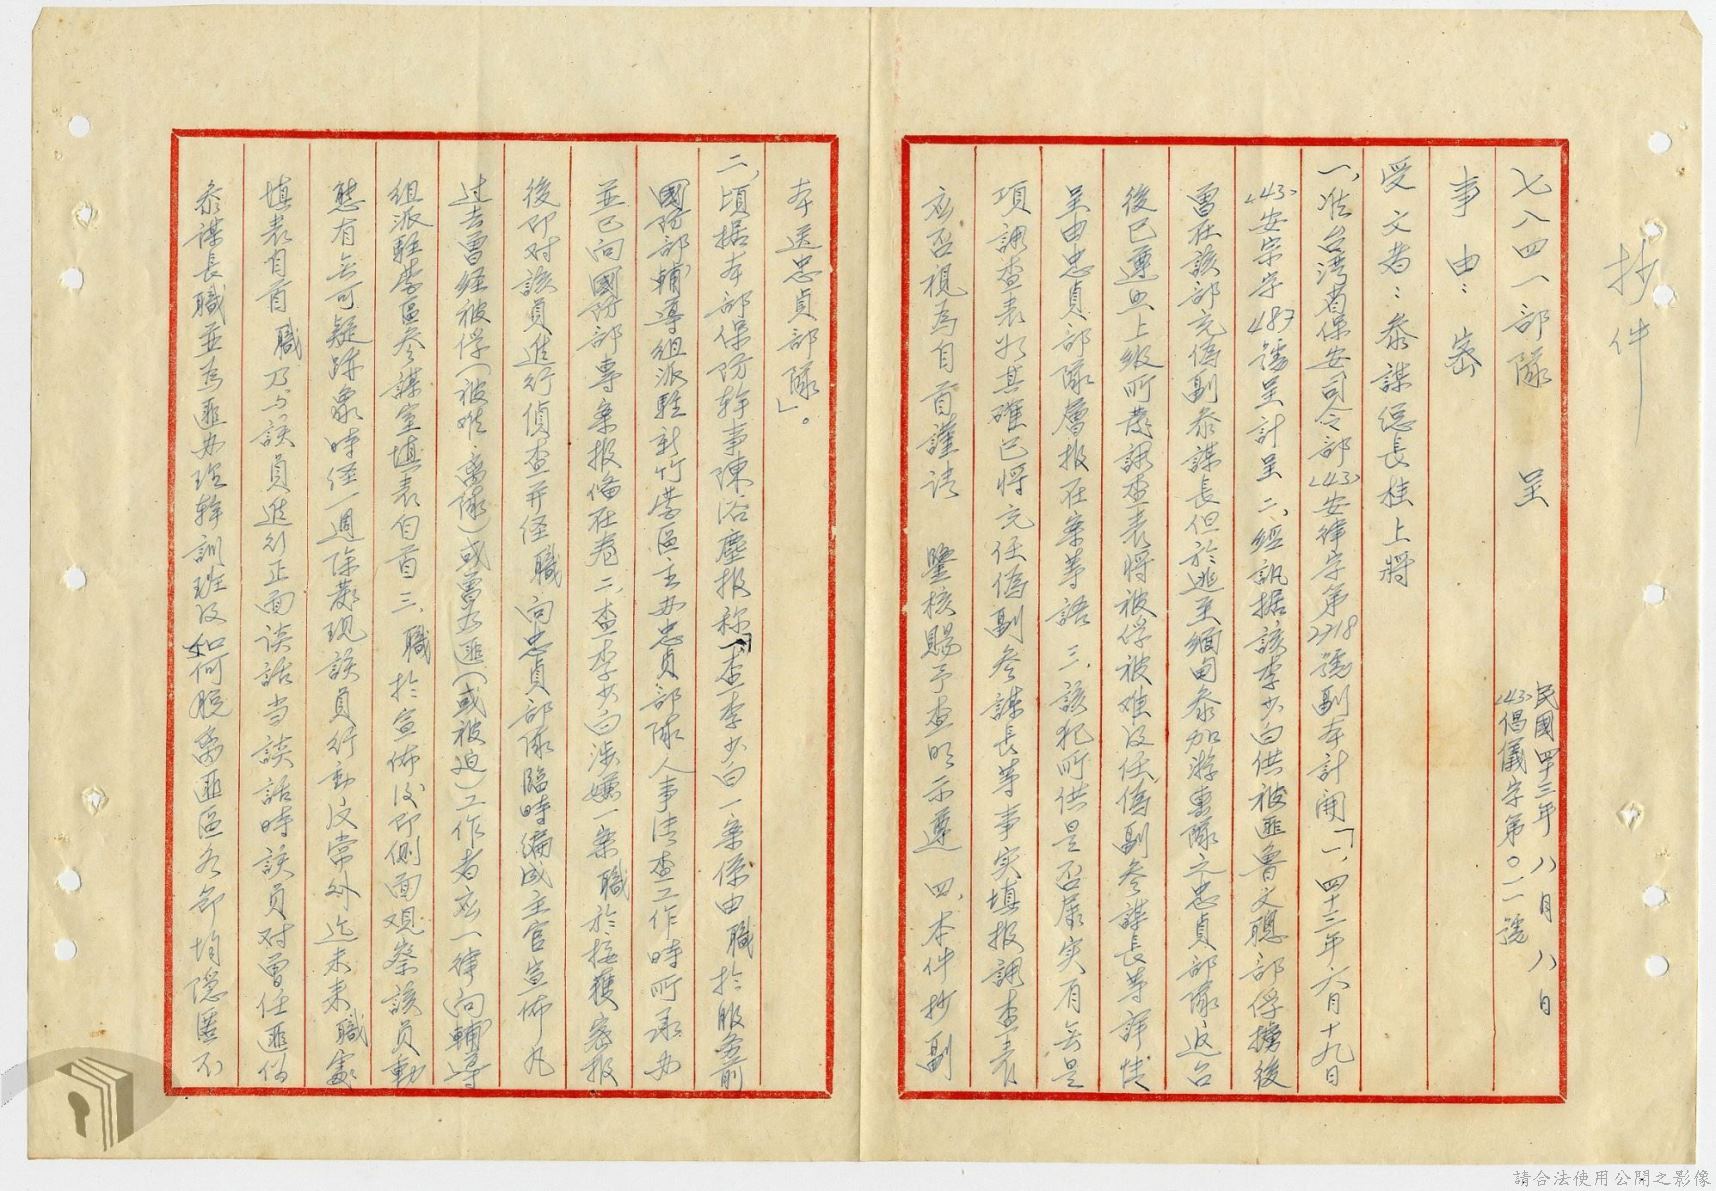 抄件
七八四一部隊　呈
民國四十三年八月八日
(43)倡儀字第〇二一號
事由：密
受文者：參謀總長桂上將
一、准台湾省保安司令部(43)安律字第2718號副本計開「一、四十三年六月十九日
(43)安宗字487號呈計呈二、經訊据該李少白供被匪魯文聰部俘擄後
曾在該部充偽副參謀長但於逃至緬甸參加游擊隊之忠貞部隊返台
後已遵照上級所發調查表將被俘被难及任偽副參謀長等詳情
呈由忠貞部隊層报在案等語三、該犯所供是否屬实有無是
項調查表如其確已將充任偽副參謀長等事实填报調查表
应否視為自首謹请　鑒核賜予查明示遵四、本件抄副
本送忠貞部隊」。
二、頃据本部保防幹事陳浴塵报称「查李少白一案係由職於服务前
國防部輔導組派駐新竹營區主办忠貞部隊人事清查工作時所承办
並已向國防部專案报偹在卷二、查李少白涉嫌一案職於接獲密报
後即对該員進行偵查并经職向忠貞部隊臨時編成主官宣佈凡
过去曾经被俘(被难离隊)或曾为匪(或被迫)工作者应一律向輔導
組派駐營區參謀室填表自首三、職於宣佈後即側面观察該員動
態有無可疑跡象時经一週除發現該員行動反常外迄未來職處
填表自首職乃与該員進行正面谈話当談話時該員对曾任匪偽
參謀長職並為匪办理幹訓班及如何脫离匪區各節均隐匿不
請合法使用公開之影像